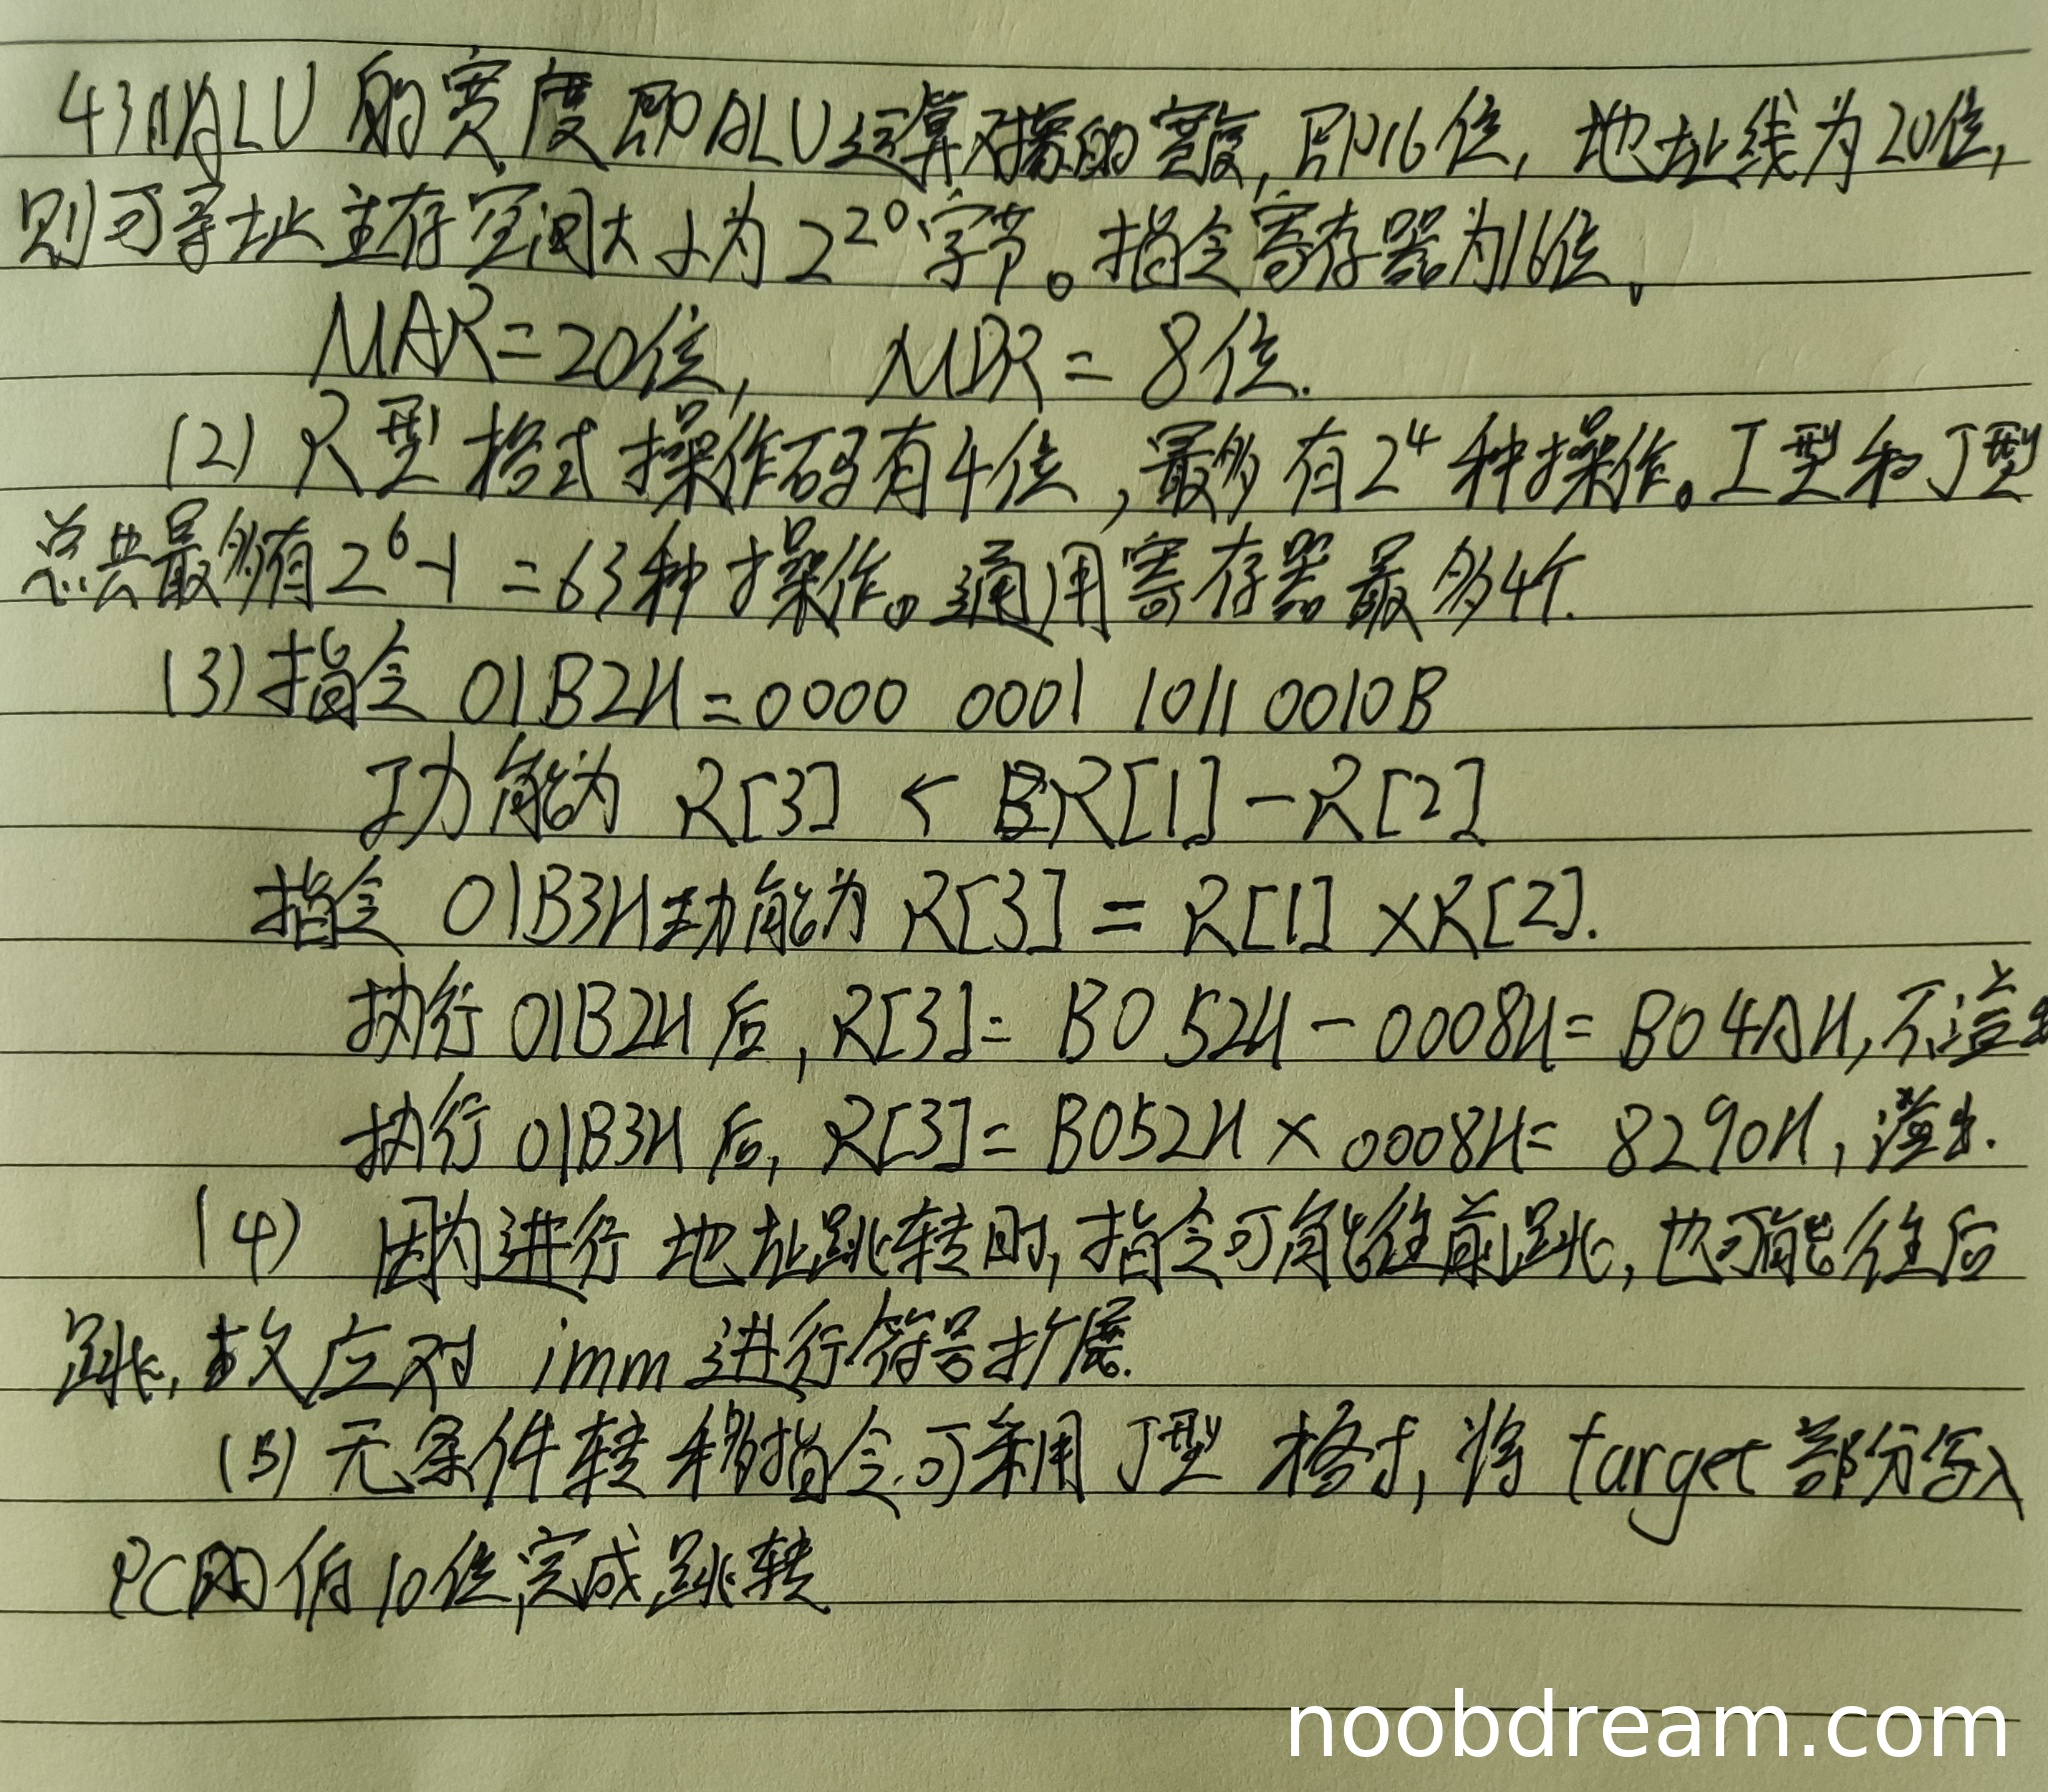 43(1)ALU的宽度即ALU运算对象的宽度,即16位,地址线为20位,
则可寻址主存空间大小为2²⁰字节。指令寄存器为16位。
MAR=20位, MDR=8位.
(2) R型格式操作码有4位,最多有2⁴种操作。I型和J型
总共最多有2⁶-1=63种操作。通用寄存器最多4个.
(3)指令 01B2H=0000 0001 1011 0010B
功能为 R[3] ← R[1]-R[2]
指令 01B3H功能为 R[3] = R[1] ×R[2].
执行 01B2H后,R[3]= B052H-0008H=B04AH,不溢出
执行 01B3H后, R[3]=B052H×0008H=8290H,溢出.
(4) 因为进行地址跳转时,指令可能往前跳,也可能往后
跳,故应对 imm 进行符号扩展.
(5) 无条件转移指令可采用 J型 格式,将 target 部分写入
PC的低10位,完成跳转
noobdream.com